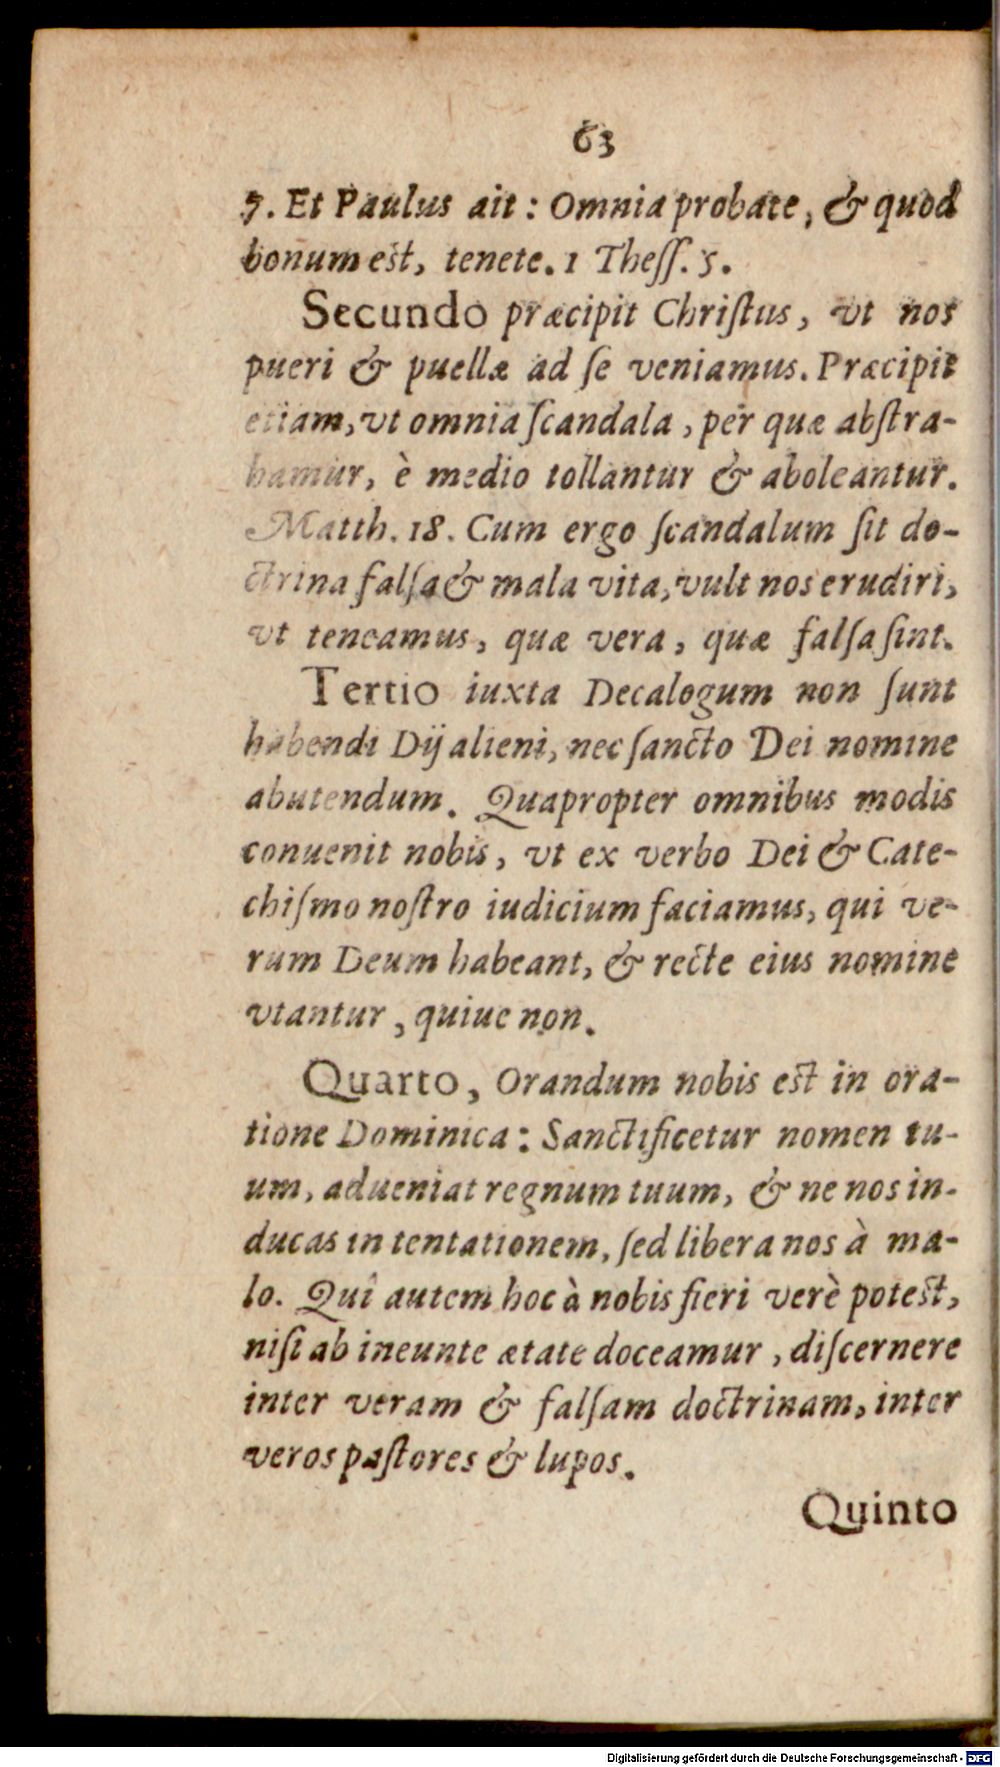 63
5. Et Paulus ait : Omnia probate, & quod
bonum est, tenete. 1 Theſſ. 5.
Secundo præcipit Chriſtus, vt nos
pueri & puellæ ad ſe veniamus. Præcipit
etiam, vt omnia ſcandala, per quæ abſtra-
hamur, è medio tollantur & aboleantur.
Matth. 18. Cum ergo ſcandalum ſit do-
ctrina falſa & mala vita, vult nos erudiri,
vt teneamus, quæ vera, quæ falſa ſint.
Tertio iuxta Decalogum non ſunt
habendi Dij alieni, nec ſancto Dei nomine
abutendum. Quapropter omnibus modis
conuenit nobis, vt ex verbo Dei & Cate-
chiſmo noſtro iudicium faciamus, qui ve-
rum Deum habeant, & recte eius nomine
vtantur, quiue non.
Quarto, Orandum nobis est in ora-
tione Dominica: Sanctificetur nomen tu-
um, adueniat regnum tuum, & ne nos in-
ducas in tentationem, ſed libera nos à ma-
lo. Quî autem hoc à nobis fieri verè potest,
niſi ab ineunte ætate doceamur, diſcernere
inter veram & falſam doctrinam, inter
veros paſtores & lupos.
Quinto
Digitalisierung gefördert durch die Deutsche Forschungsgemeinschaft - DFG